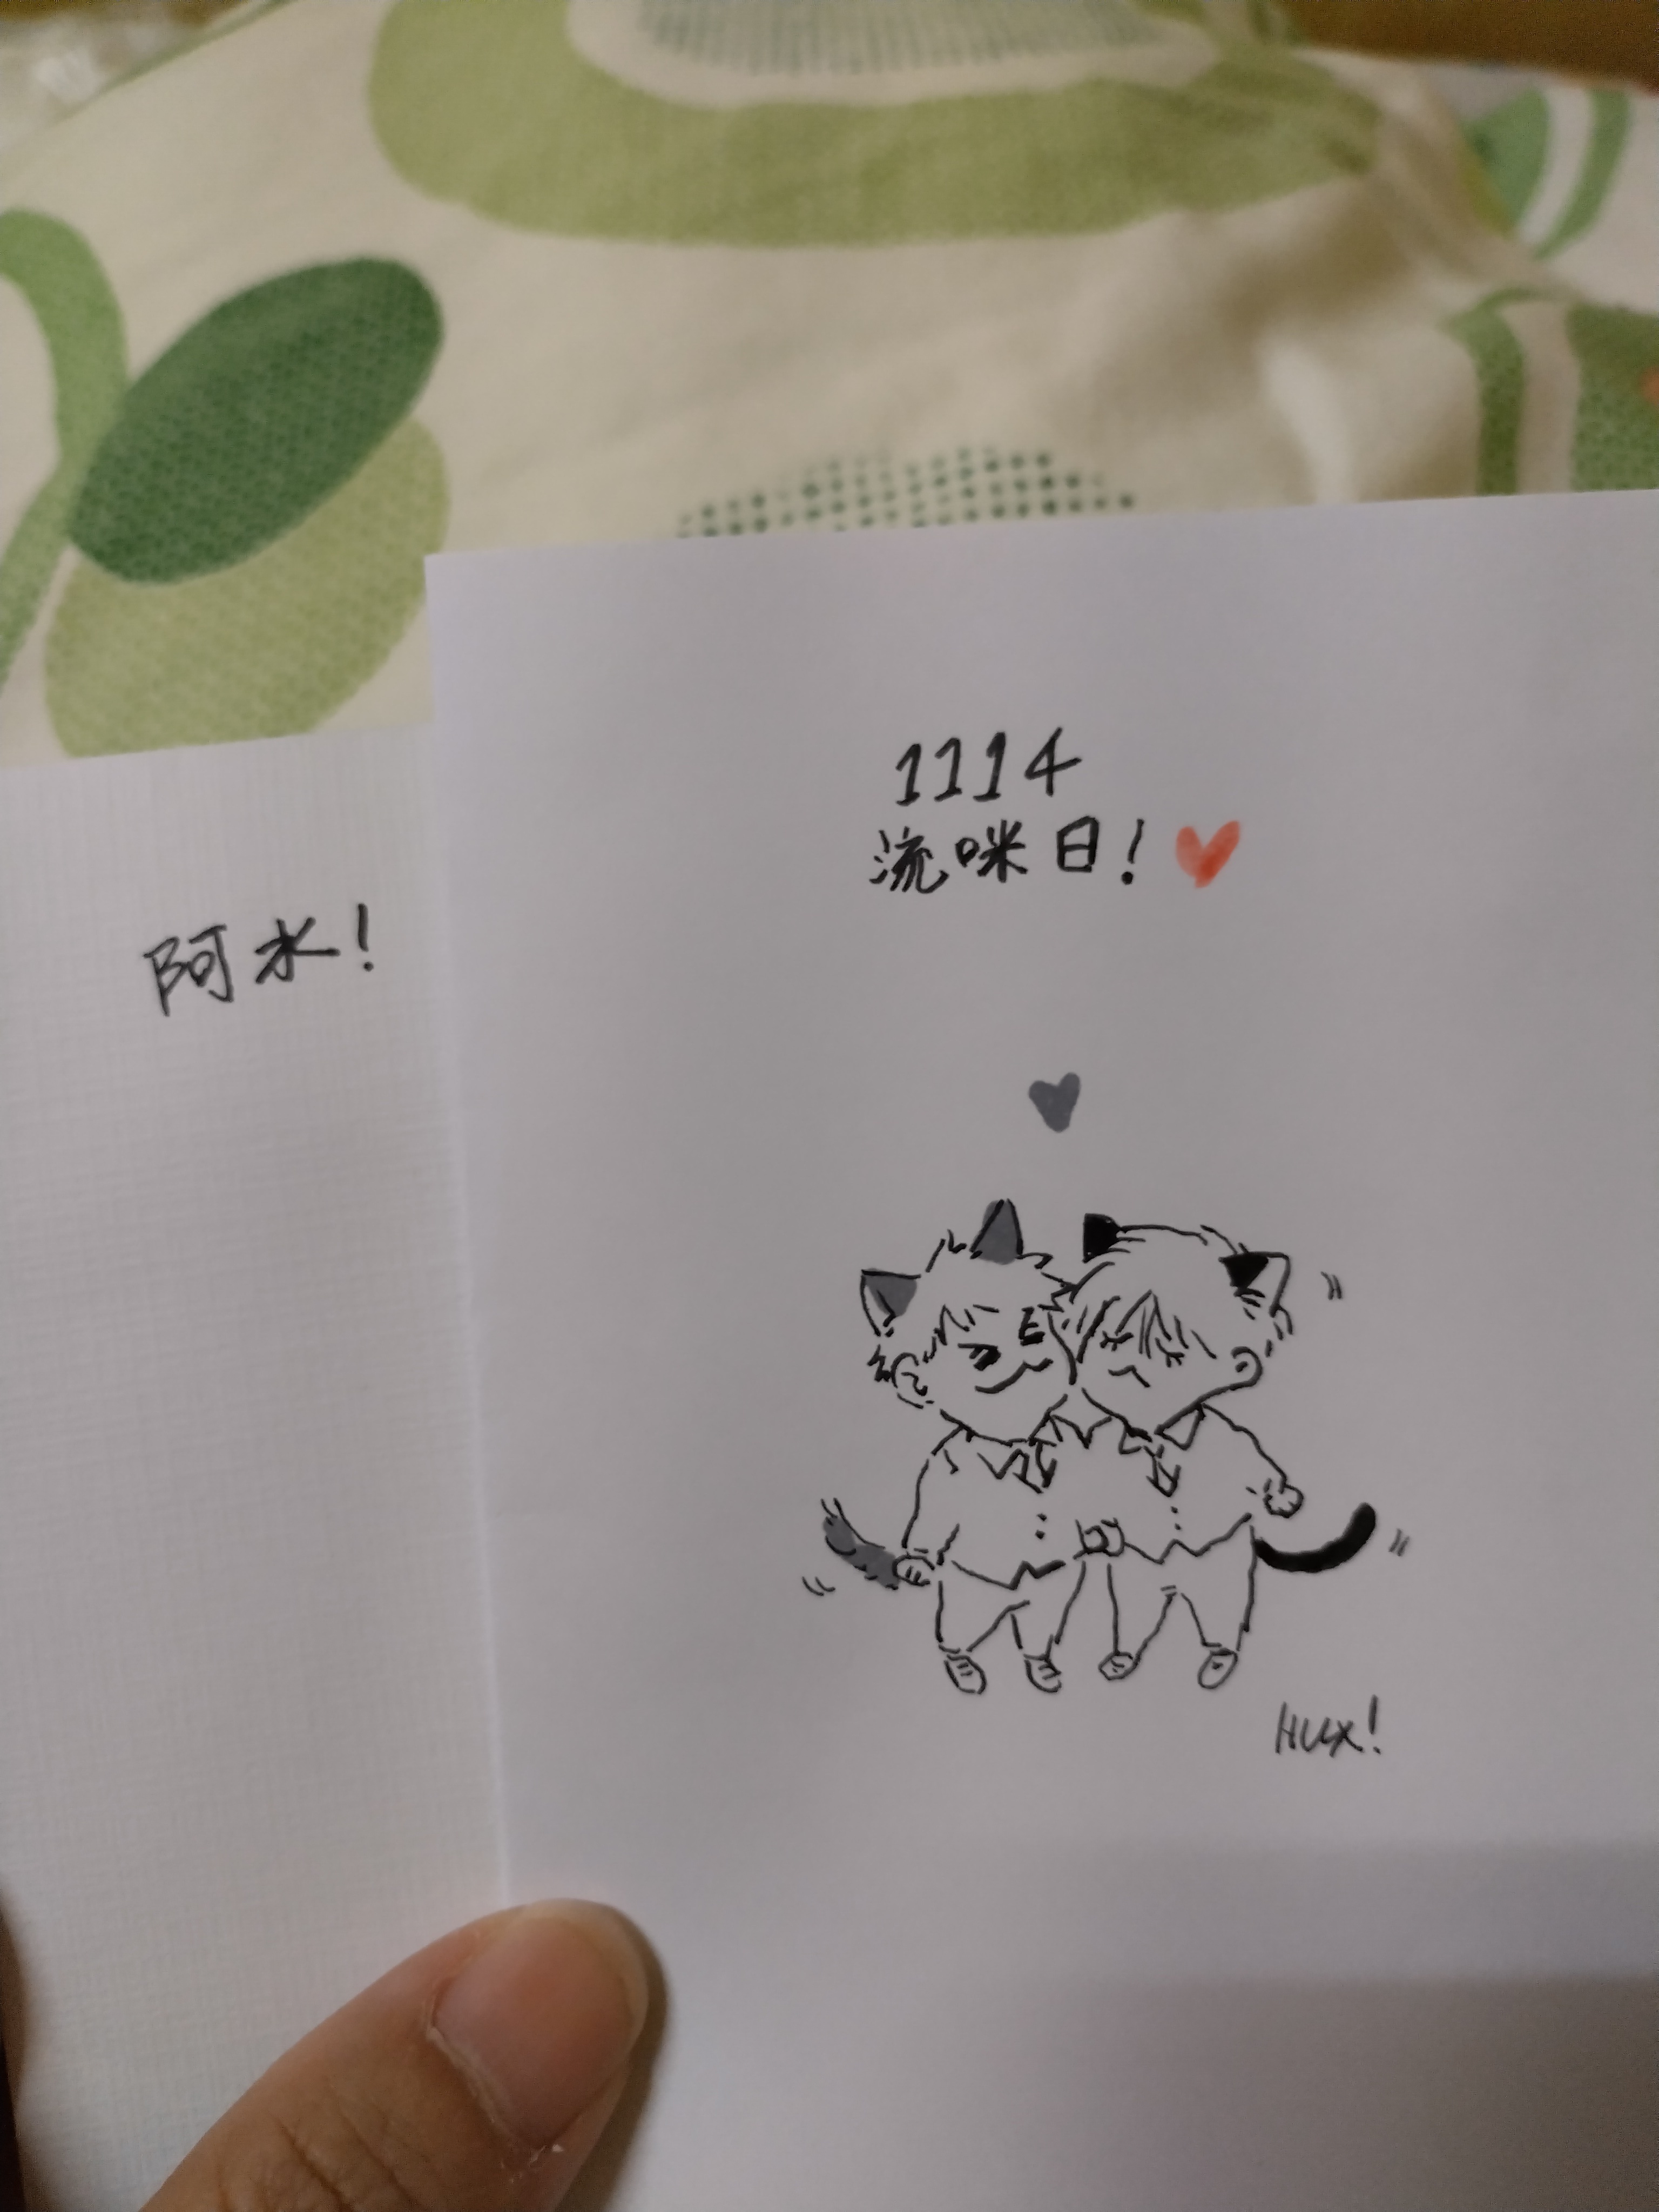 阿水!
1114
流咪日!
Hux!